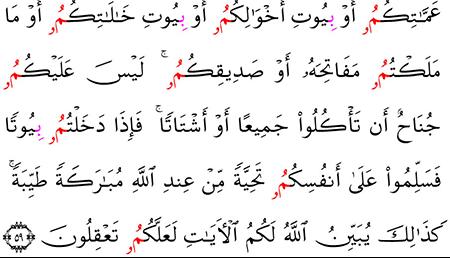 عَمَّـٰتِكُمُۥٓ أَوۡ بِيُوتِ أَخۡوَٰلِكُمُۥٓ أَوۡ بِيُوتِ خَـٰلَـٰتِكُمُۥٓ أَوۡ مَا
مَلَكۡتُمُۥ مَفَاتِحَهُۥٓ أَوۡ صَدِيقِكُمُۥۚ لَيۡسَ عَلَيۡكُمُۥ
جُنَاحٌ أَن تَأۡكُلُوا۟ جَمِيعًا أَوۡ أَشۡتَاتًاۚ فَإِذَا دَخَلۡتُمُۥ بِيُوتًا
فَسَلِّمُوا۟ عَلَىٰٓ أَنفُسِكُمُۥ تَحِيَّةً مِّنۡ عِندِ ٱللَّهِ مُبَـٰرَكَةً طَيِّبَةًۚ
كَذَٰلِكَ يُبَيِّنُ ٱللَّهُ لَكُمُ ٱلۡأَيَـٰتِ لَعَلَّكُمُۥ تَعۡقِلُونَ ٥٩